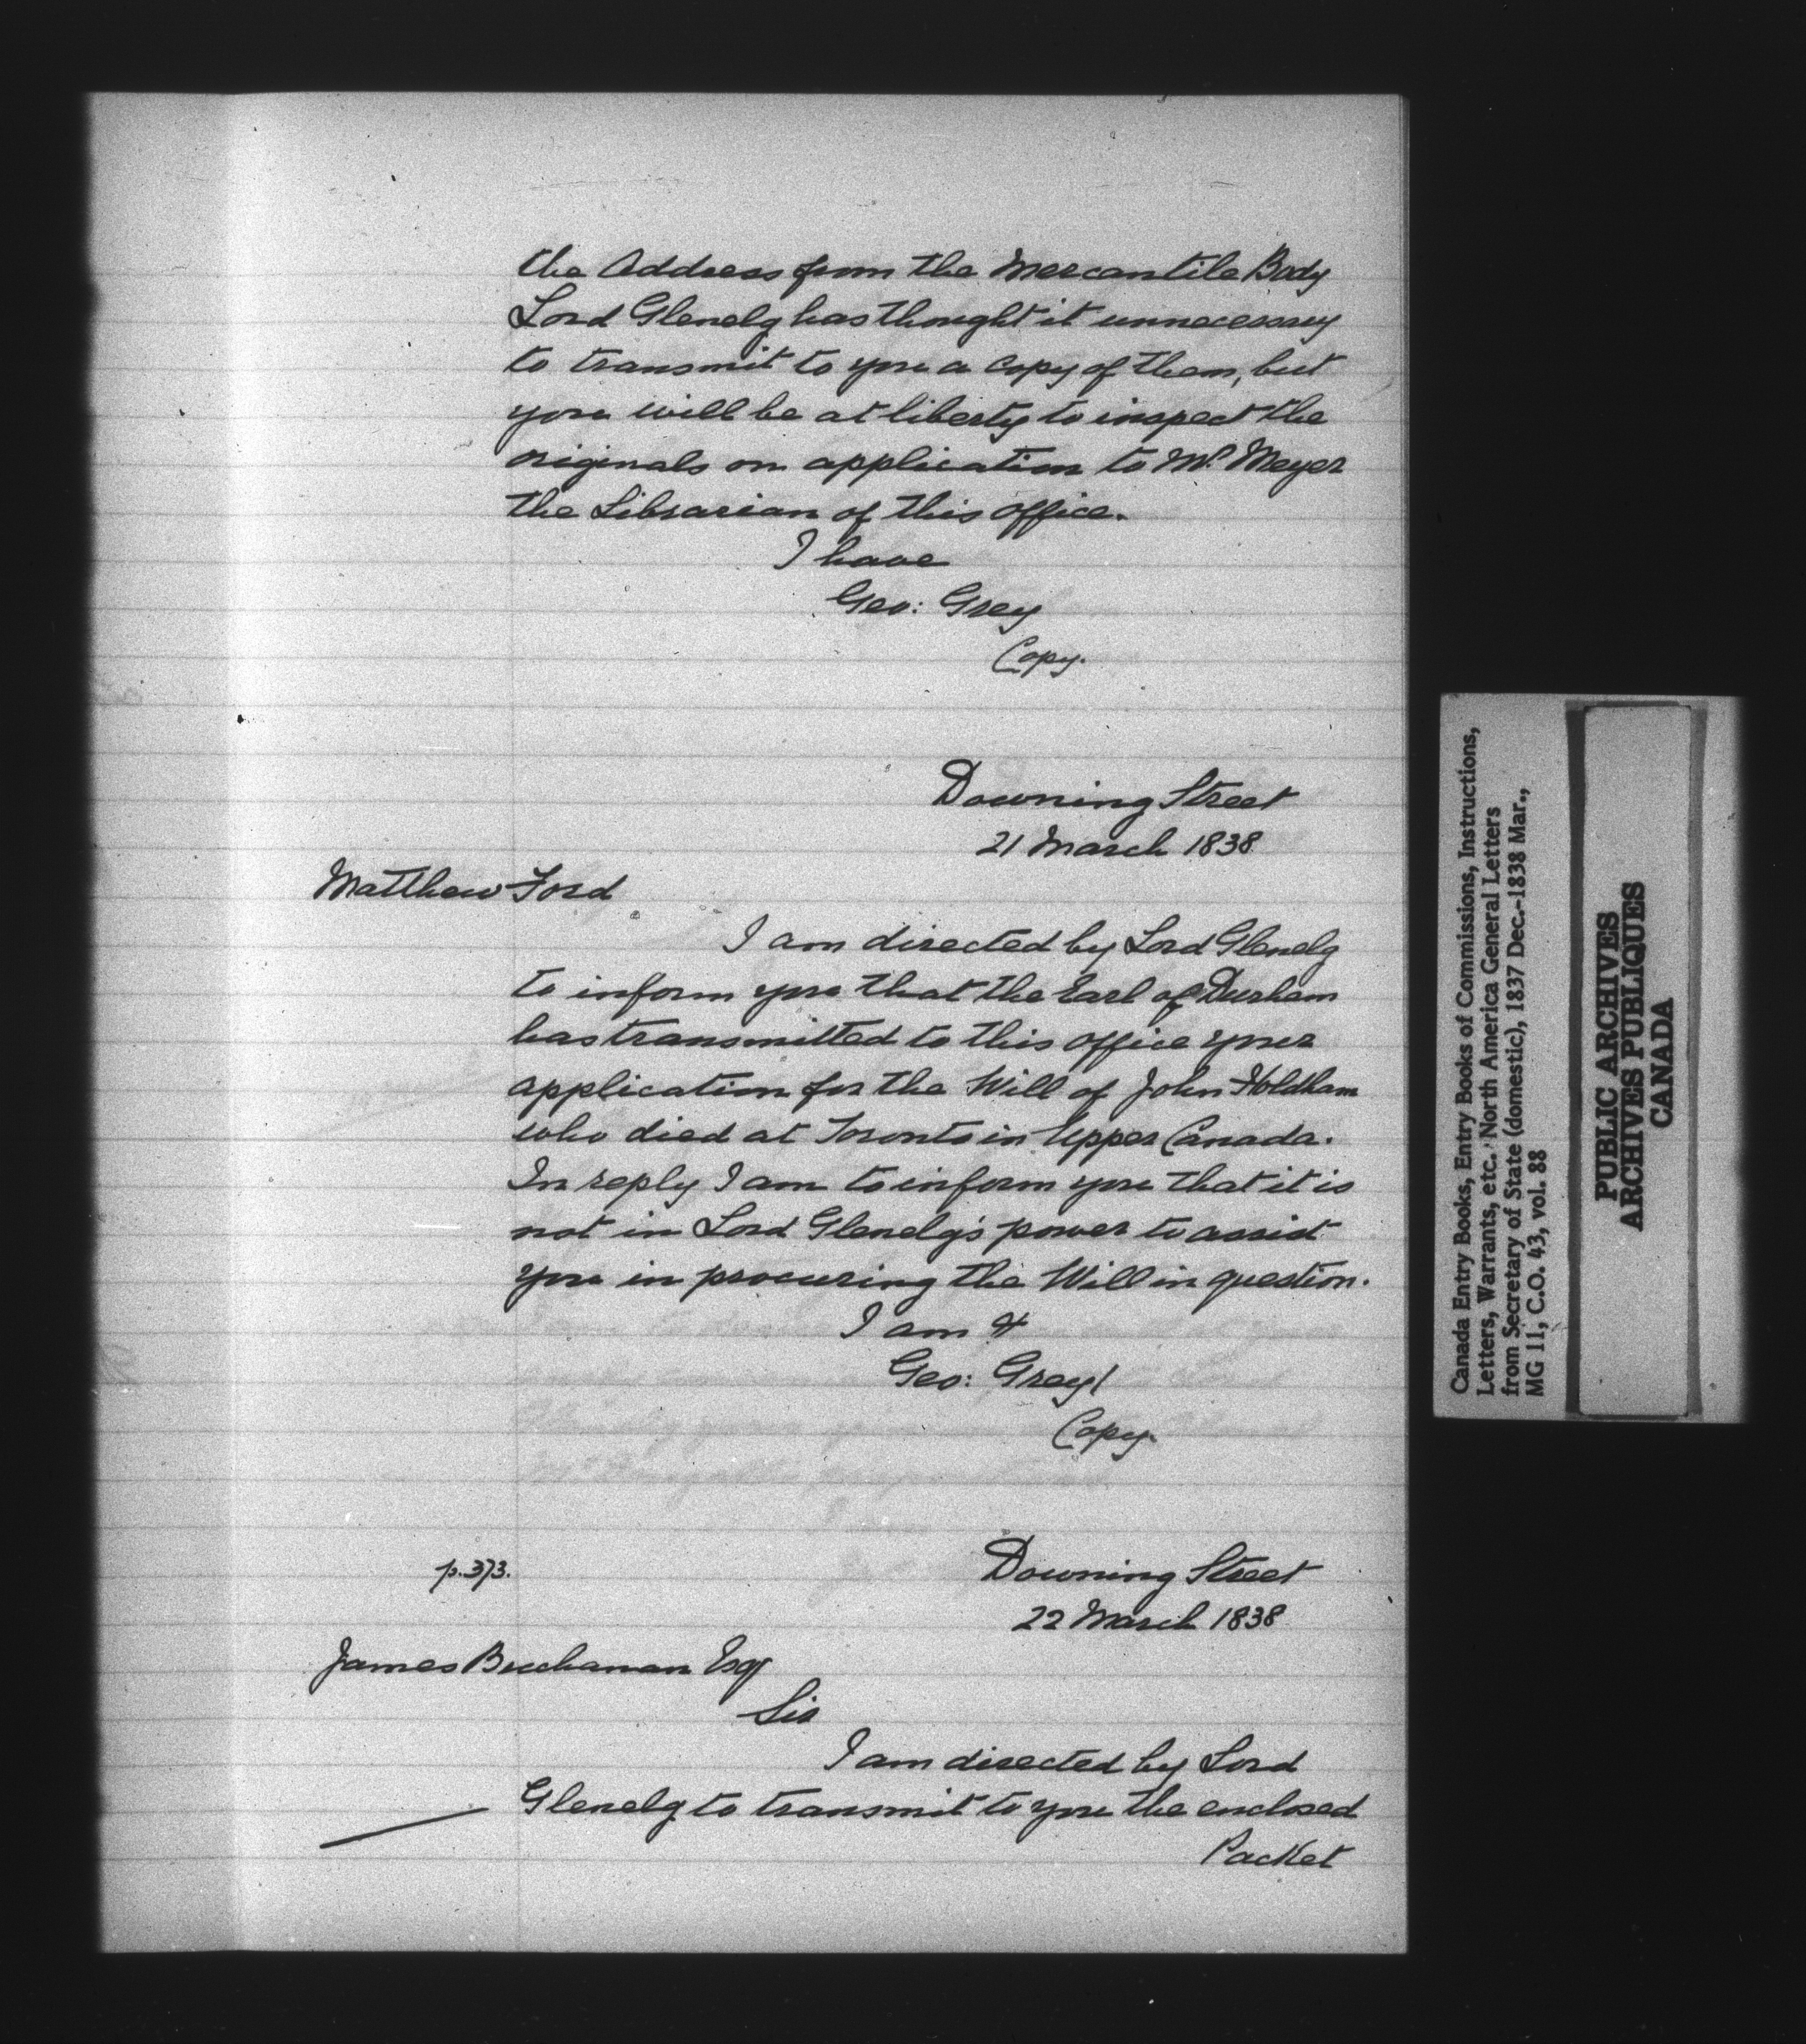 the Address from the Mercantile Body
Lord Glenelg has thought it unnecessary
to transmit to you a copy of them, but
you will be at liberty to inspect the
originals on application to Mr. Meyer
the Librarian of this office.
I have
Geo: Grey
Copy.
Downing Street
21 March 1838
Matthew Ford
I am directed by Lord Glenelg
to inform you that the Earl of Durham
has transmitted to this office your
application for the Will of John Holdham
who died at Toronto in Upper Canada.
In reply I am to inform you that it is
not in Lord Glenelg's power to assist
you in procuring the Will in question.
I am &
Geo: Grey
Copy.
p. 373.
Downing Street
22 March 1838
James Buchanan Esqr
Sir
I am directed by Lord
Glenelg to transmit to you the enclosed
Packet
Canada Entry Books, Entry Books of Commissions, Instructions,
Letters, Warrants, etc. North America General Letters
from Secretary of State (domestic), 1837 Dec.-1838 Mar.,
MG 11, C.O. 43, vol. 88
PUBLIC ARCHIVES
ARCHIVES PUBLIQUES
CANADA